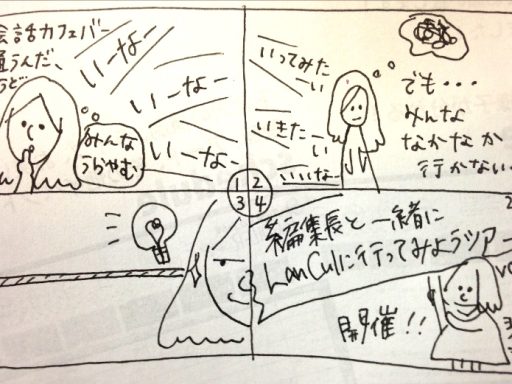 会話カフェバー
違うんだ、
いーなー
いーなー
いーなー
みんな
うらやむ
いってみたーい
いきたーい
いいなー
でも・・・
みんな
なかなか
行かない
1 2
3 4
編集長と一緒に
LanCulに行ってみようツアー
開催!!